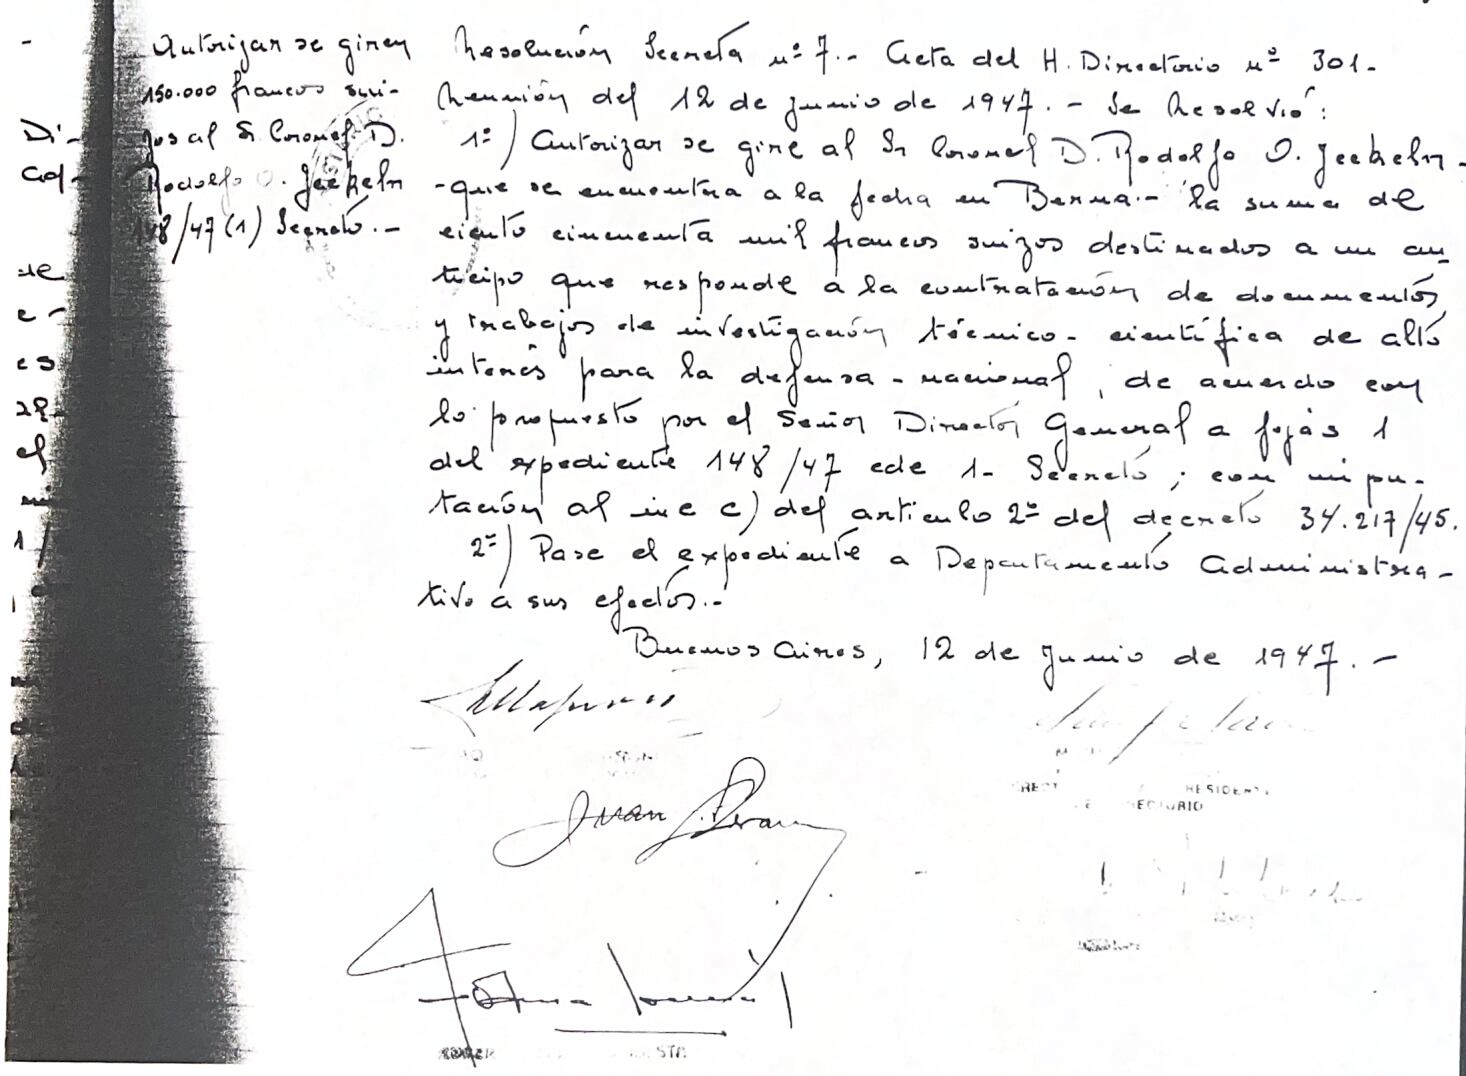 -
Autorizar se giren
150.000 francos sui-
zos al Sr. Coronel D.
Rodolfo O. Jeckeln
148/47 (1) Secreto.-
Di-
ad-
e -
es
el
1/
Resolución Secreta nº 7.- Acta del H. Directorio nº 301-
Reunión del 12 de Junio de 1947.- Se Resolvió:
1º) Autorizar se gire al Sr Coronel D. Rodolfo O. Jeckeln-
-que se encuentra a la fecha en Berna.- la suma de
ciento cincuenta mil francos suizos destinados a un an
ticipo que responde a la contratación de documentos
y trabajos de investigación técnico-científica de alto
interés para la defensa-nacional, de acuerdo con
lo propuesto por el Señor Director General a fojas 1
del expediente 148/47 cde 1- Secreto; con impu-
tación al inc c) del artículo 2º del decreto 34.217/45.
2º) Pase el expediente a Departamento Administra-
tivo a sus efectos.-
Buenos Aires, 12 de Junio de 1947.-
Juan Peran